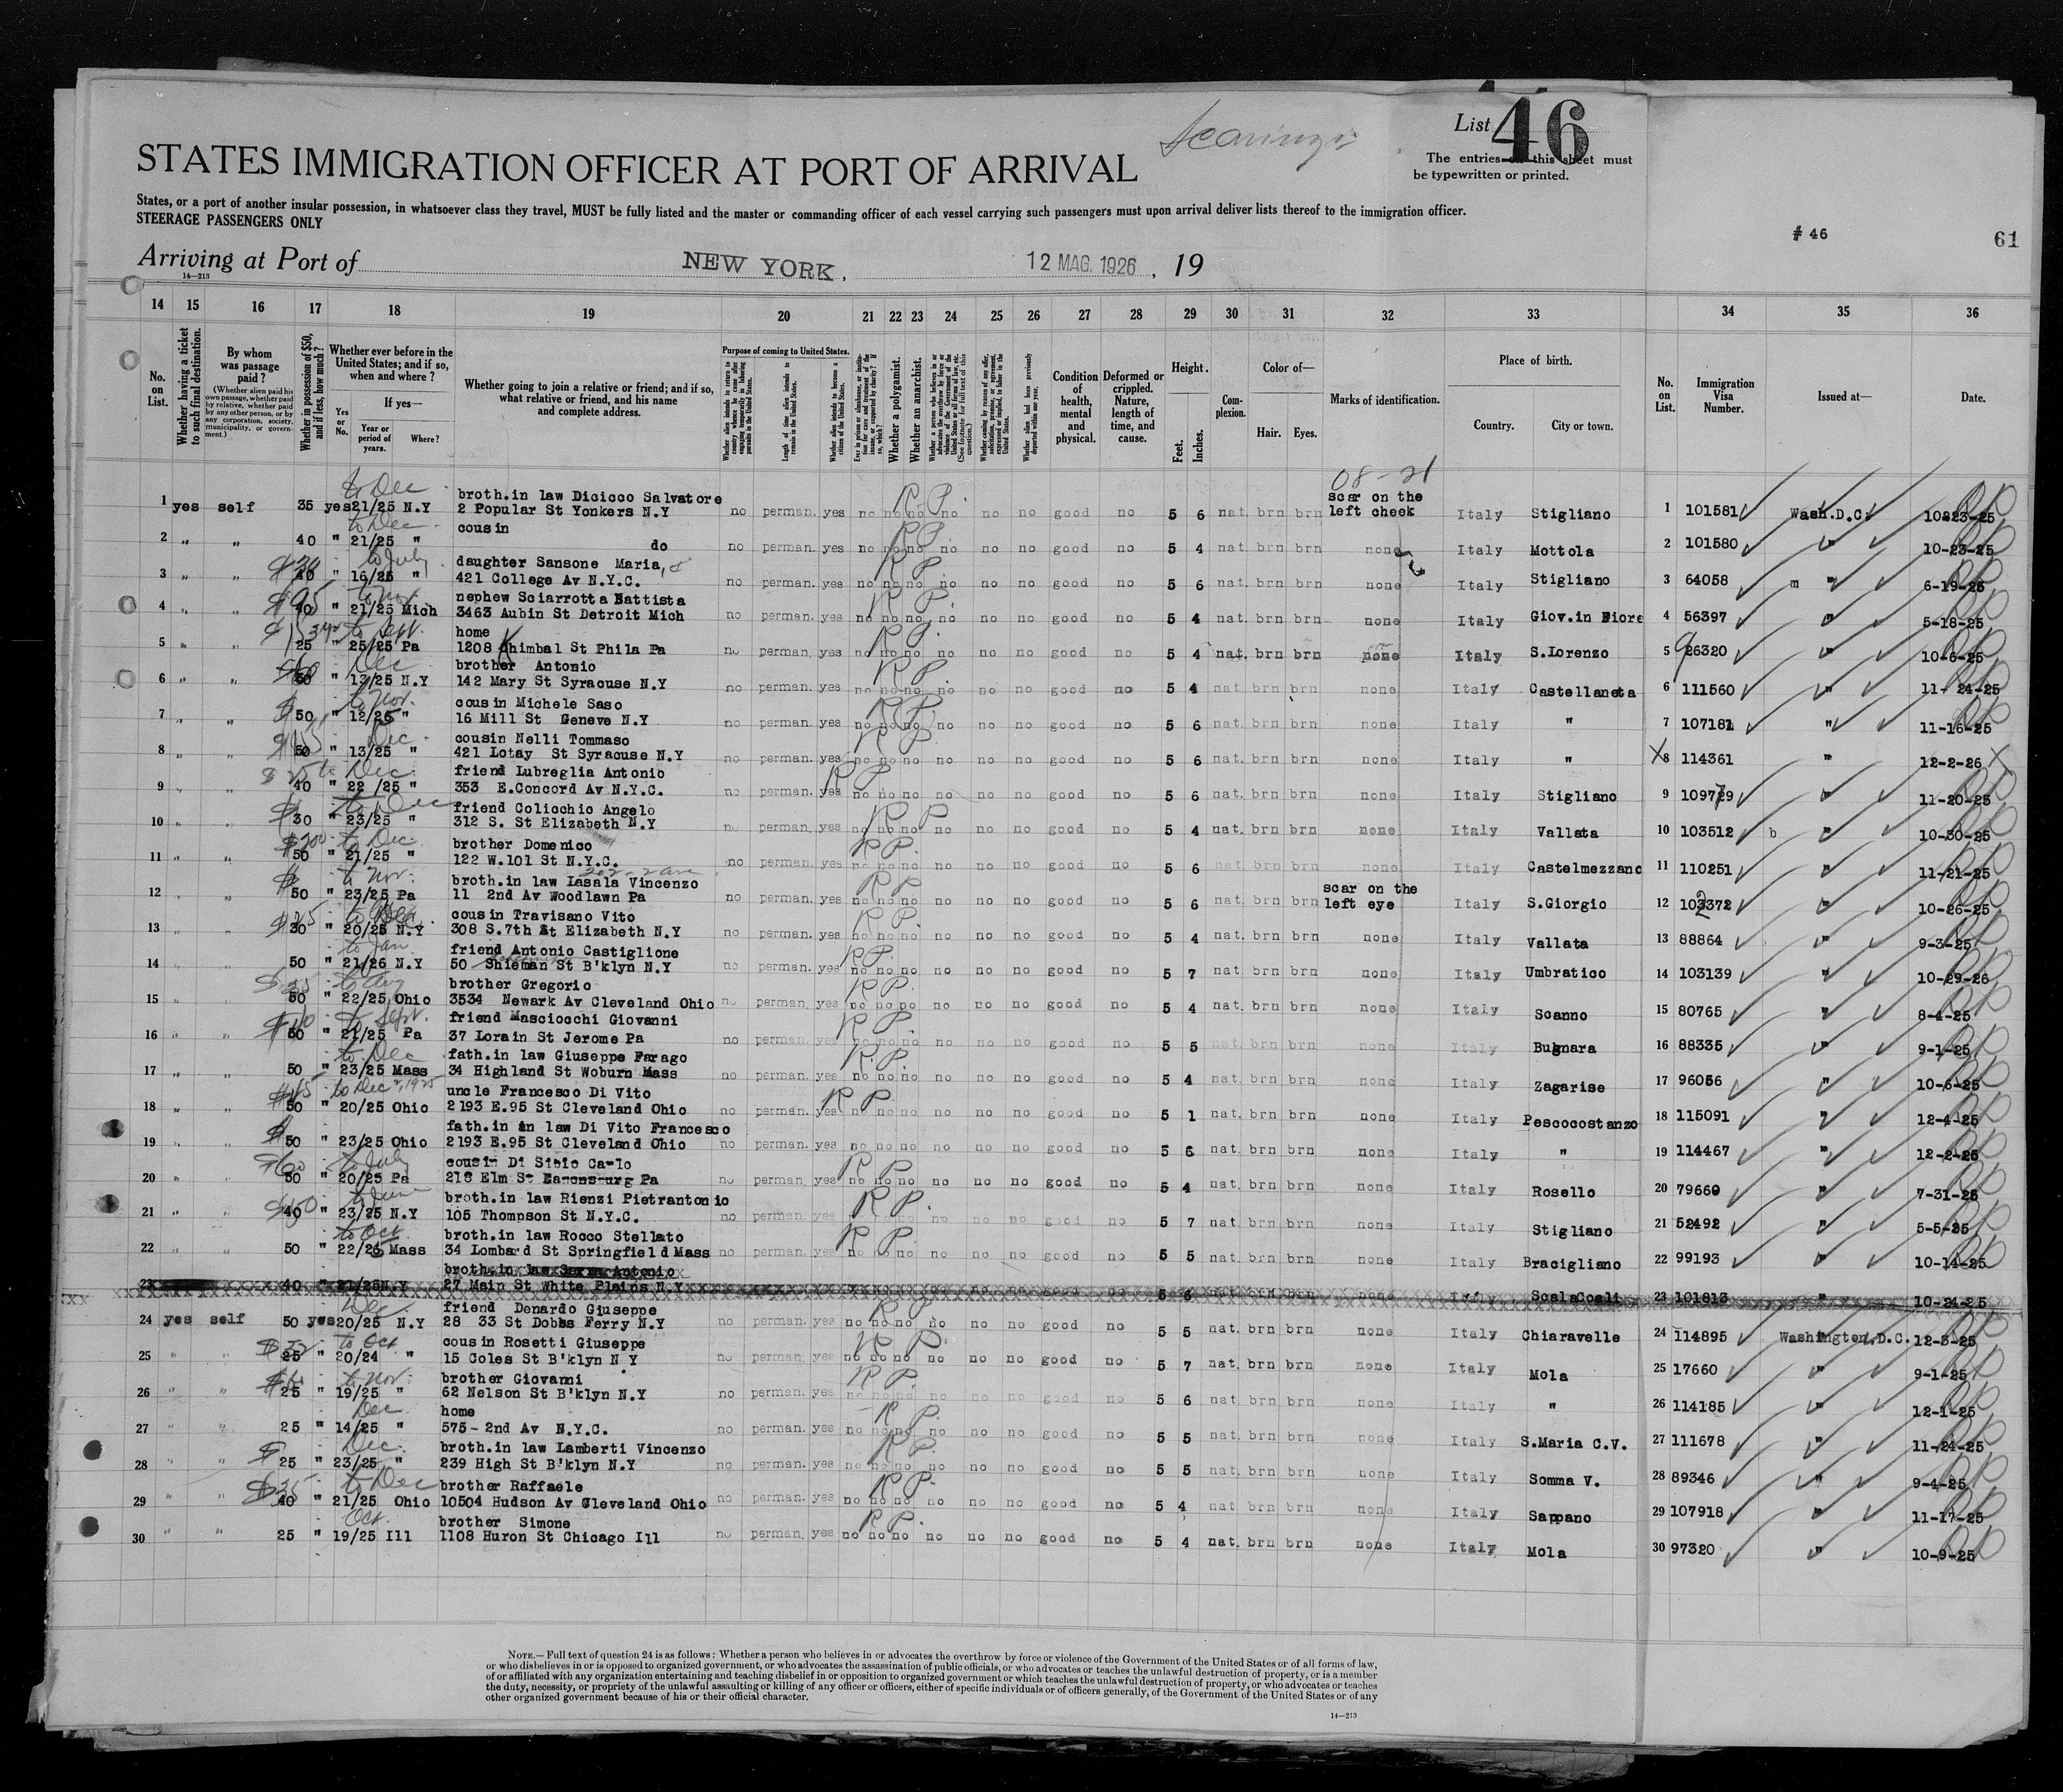 Scaringi
List 46
The entries on this sheet must
be typewritten or printed.
STATES IMMIGRATION OFFICER AT PORT OF ARRIVAL
States, or a port of another insular possession, in whatsoever class they travel, MUST be fully listed and the master or commanding officer of each vessel carrying such passengers must upon arrival deliver lists thereof to the immigration officer.
STEERAGE PASSENGERS ONLY
# 46
61
Arriving at Port of NEW YORK, 12 MAG. 1926, 19
14—213
14 15 16 17 18 19 20 21 22 23 24 25 26 27 28 29 30 31 32 33 34 35 36
No. on List.
Whether having a ticket to such final destination.
By whom was passage paid?
(Whether alien paid his own passage, whether paid by relative, whether paid by any other person, or by any corporation, society, municipality, or government.)
Whether in possession of $50, and if less, how much?
Whether ever before in the United States; and if so, when and where?
Yes or No.
If yes—
Year or period of years.
Where?
Whether going to join a relative or friend; and if so, what relative or friend, and his name and complete address.
Purpose of coming to United States.
Length of time alien intends to remain in the United States.
Whether alien intends to become a citizen of the United States.
Whether a polygamist.
Whether an anarchist.
Condition of health, mental and physical.
Deformed or crippled. Nature, length of time, and cause.
Height.
Feet.
Inches.
Complexion.
Color of—
Hair.
Eyes.
Marks of identification.
Place of birth.
Country.
City or town.
No. on List.
Immigration Visa Number.
Issued at—
Date.
08-21
to Dec
1 yes self 35 yes 21/25 N.Y broth.in law Dicicco Salvatore 2 Popular St Yonkers N.Y no perman. yes no no no no no no good no 5 6 nat. brn brn scar on the left cheek Italy Stigliano 1 101581 Wash.D.C. 10-23-25
to Dec.
2 " " 40 " 21/25 " cousin do no perman. yes no no no no no no good no 5 4 nat. brn brn none Italy Mottola 2 101580 " 10-23-25
to July
3 " " " 16/25 " daughter Sansone Maria, 421 College Av N.Y.C. no perman. yes no no no no no no good no 5 6 nat. brn brn none Italy Stigliano 3 64058 " 6-19-25
to Nov.
4 " " 40 " 21/25 Mich nephew Sciarrotta Battista 3463 Aubin St Detroit Mich no perman. yes no no no no no no good no 5 4 nat. brn brn none Italy Giov.in Fiore 4 56397 " 5-18-25
to Sept.
5 " " 25 " 25/25 Pa home 1208 Khimbal St Phila Pa no perman. yes no no no no no no good no 5 4 nat. brn brn none Italy S.Lorenzo 5 96320 " 10-6-25
Dec
6 " " " 13/25 N.Y brother Antonio 142 Mary St Syracuse N.Y no perman. yes no no no no no no good no 5 4 nat. brn brn none Italy Castellaneta 6 111560 " 11-24-25
to Nov.
7 " " 50 " 12/25 " cousin Michele Saso 16 Mill St Geneve N.Y no perman. yes no no no no no no good no 5 6 nat. brn brn none Italy " 7 107181 " 11-16-25
Dec.
8 " " 50 " 13/25 " cousin Nelli Tommaso 421 Lotay St Syracuse N.Y no perman. yes no no no no no no good no 5 6 nat. brn brn none Italy " X8 114361 " 12-2-26 X
to Dec.
9 " " 40 " 22/25 " friend Lubreglia Antonio 353 E.Concord Av N.Y.C. no perman. yes no no no no no no good no 5 6 nat. brn brn none Italy Stigliano 9 109779 " 11-20-25
to Dec
10 " " 30 " 23/25 " friend Colicchio Angelo 312 S. St Elizabeth N.Y no perman. yes no no no no no no good no 5 4 nat. brn brn none Italy Vallata 10 103512 b " 10-30-25
$200 to Dec.
11 " " 50 " 21/25 " brother Domenico 122 W.101 St N.Y.C. no perman. yes no no no no no no good no 5 6 nat. brn brn none Italy Castelmezzano 11 110251 " 11-21-25
to Nov.
12 " " 50 " 23/25 Pa broth.in law Lasala Vincenzo 11 2nd Av Woodlawn Pa no perman. yes no no no no no no good no 5 6 nat. brn brn scar on the left eye Italy S.Giorgio 12 102372 " 10-26-25
$25 to Dec.
13 " " 30 " 20/25 N.Y cousin Travisano Vito 308 S.7th St Elizabeth N.Y no perman. yes no no no no no no good no 5 4 nat. brn brn none Italy Vallata 13 88864 " 9-3-25
to Jan
14 " " 50 " 21/26 N.Y friend Antonio Castiglione 50 Shieman St B'klyn N.Y no perman. yes no no no no no no good no 5 7 nat. brn brn none Italy Umbratico 14 103139 " 10-29-26
to Aug
15 " " 50 " 22/25 Ohio brother Gregorio 3534 Newark Av Cleveland Ohio no perman. yes no no no no no no good no 5 4 nat. brn brn none Italy Scanno 15 80765 " 8-4-25
to Sept.
16 " " " 21/25 Pa friend Masciocchi Giovanni 37 Lorain St Jerome Pa no perman. yes no no no no no no good no 5 5 nat. brn brn none Italy Bugnara 16 88335 " 9-1-25
to Dec
17 " " 50 " 23/25 Mass fath.in law Giuseppe Farago 34 Highland St Woburn Mass no perman. yes no no no no no no good no 5 4 nat. brn brn none Italy Zagarise 17 96056 " 10-6-25
to Dec 2, 1925
18 " " 50 " 20/25 Ohio uncle Francesco Di Vito 2193 E.95 St Cleveland Ohio no perman. yes no no no no no no good no 5 1 nat. brn brn none Italy Pescocostanzo 18 115091 " 12-4-25
19 " " 50 " 23/25 Ohio fath.in law Di Vito Francesco 2193 E.95 St Cleveland Ohio no perman. yes no no no no no no good no 5 6 nat. brn brn none Italy " 19 114467 " 12-2-25
$60 to July
20 " " 50 " 20/25 Pa cousin Di Sisio Carlo 216 Elm St Pa no perman. yes no no no no no no good no 5 4 nat. brn brn none Italy Rosello 20 79660 " 7-31-25
to June
21 " " 40 " 23/25 N.Y broth.in law Rienzi Pietrantonio 105 Thompson St N.Y.C. no perman. yes no no no no no no good no 5 7 nat. brn brn none Italy Stigliano 21 52492 " 5-5-25
to Oct
22 " " 50 " 22/25 Mass broth.in law Rocco Stellato 34 Lombard St Springfield Mass no perman. yes no no no no no no good no 5 5 nat. brn brn none Italy Bracigliano 22 99193 " 10-14-25
23 40 " 21/25 N.Y broth.in law Antonio 27 Main St White Plains N.Y 5 6 nat. brn brn none Italy ScalaCoeli 23 101813 " 10-24-25
Dec.
24 yes self 50 yes 20/25 N.Y friend Denardo Giuseppe 28 33 St Dobbs Ferry N.Y no perman. yes no no no no no no good no 5 5 nat. brn brn none Italy Chiaravelle 24 114895 Washington,D.C. 12-3-25
to Oct
25 " " 25 " 20/24 " cousin Rosetti Giuseppe 15 Coles St B'klyn N Y no perman. yes no no no no no no good no 5 7 nat. brn brn none Italy Mola 25 17660 " 9-1-25
to Nov.
26 " " 25 " 19/25 " brother Giovanni 62 Nelson St B'klyn N.Y no perman. yes no no no no no no good no 5 6 nat. brn brn none Italy " 26 114185 " 12-1-25
Dec
27 " " 25 " 14/25 " home 575-2nd Av N.Y.C. no perman. yes no no no no no no good no 5 5 nat. brn brn none Italy S.Maria C.V. 27 111678 " 11-24-25
Dec.
28 " " 25 " 23/25 " broth.in law Lamberti Vincenzo 239 High St B'klyn N.Y no perman. yes no no no no no no good no 5 5 nat. brn brn none Italy Somma V. 28 89346 " 9-4-25
to Dec
29 " " 40 " 21/25 Ohio brother Raffaele 10504 Hudson Av Cleveland Ohio no perman. yes no no no no no no good no 5 4 nat. brn brn none Italy Sappano 29 107918 " 11-17-25
Oct.
30 " " 25 " 19/25 Ill brother Simone 1108 Huron St Chicago Ill no perman. yes no no no no no no good no 5 4 nat. brn brn none Italy Mola 30 97320 " 10-9-25
NOTE.—Full text of question 24 is as follows: Whether a person who believes in or advocates the overthrow by force or violence of the Government of the United States or of all forms of law,
or who disbelieves in or is opposed to organized government, or who advocates the assassination of public officials, or who advocates or teaches the unlawful destruction of property, or is a member
of or affiliated with any organization entertaining and teaching disbelief in or opposition to organized government or which teaches the unlawful destruction of property, or who advocates or teaches
the duty, necessity, or propriety of the unlawful assaulting or killing of any officer or officers, either of specific individuals or of officers generally, of the Government of the United States or of any
other organized government because of his or their official character.
14—213